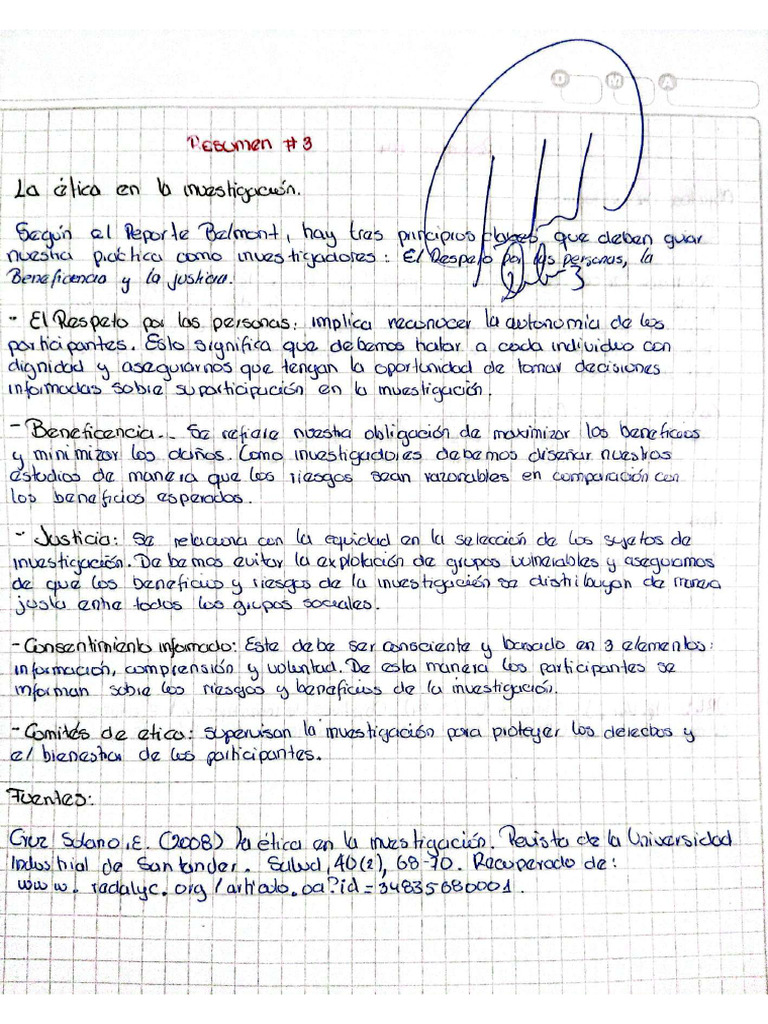 D M A
Resumen #3
La ética en la investigación.
Según el Reporte Belmont, hay tres principios claves que deben guiar
nuestra práctica como investigadores: El Respeto por las personas, la
Beneficencia y la justicia.
- El Respeto por las personas: implica reconocer la autonomía de los
participantes. Esto significa que debemos tratar a cada individuo con
dignidad y asegurarnos que tengan la oportunidad de tomar decisiones
informadas sobre su participación en la investigación.
- Beneficencia.- Se refiere nuestra obligación de maximizar los beneficios
y minimizar los daños. Como investigadores debemos diseñar nuestros
estudios de manera que los riesgos sean razonables en comparación con
los beneficios esperados.
- Justicia: Se relaciona con la equidad en la selección de los sujetos de
investigación. Debemos evitar la explotación de grupos vulnerables y asegurarnos
de que los beneficios y riesgos de la investigación se distribuyan de manera
justa entre todos los grupos sociales.
- Consentimiento informado: Este debe ser consciente y basado en 3 elementos:
información, comprensión y voluntad. De esta manera los participantes se
informan sobre los riesgos y beneficios de la investigación.
- Comités de etica: supervisan la investigación para proteger los derechos y
el bienestar de los participantes.
Fuentes:
Cruz Solano, E. (2008) la ética en la investigación. Revista de la Universidad
Industrial de Santander. Salud, 40(2), 68-70. Recuperado de:
www. redalyc.org/articulo.oa?id=34835680001.